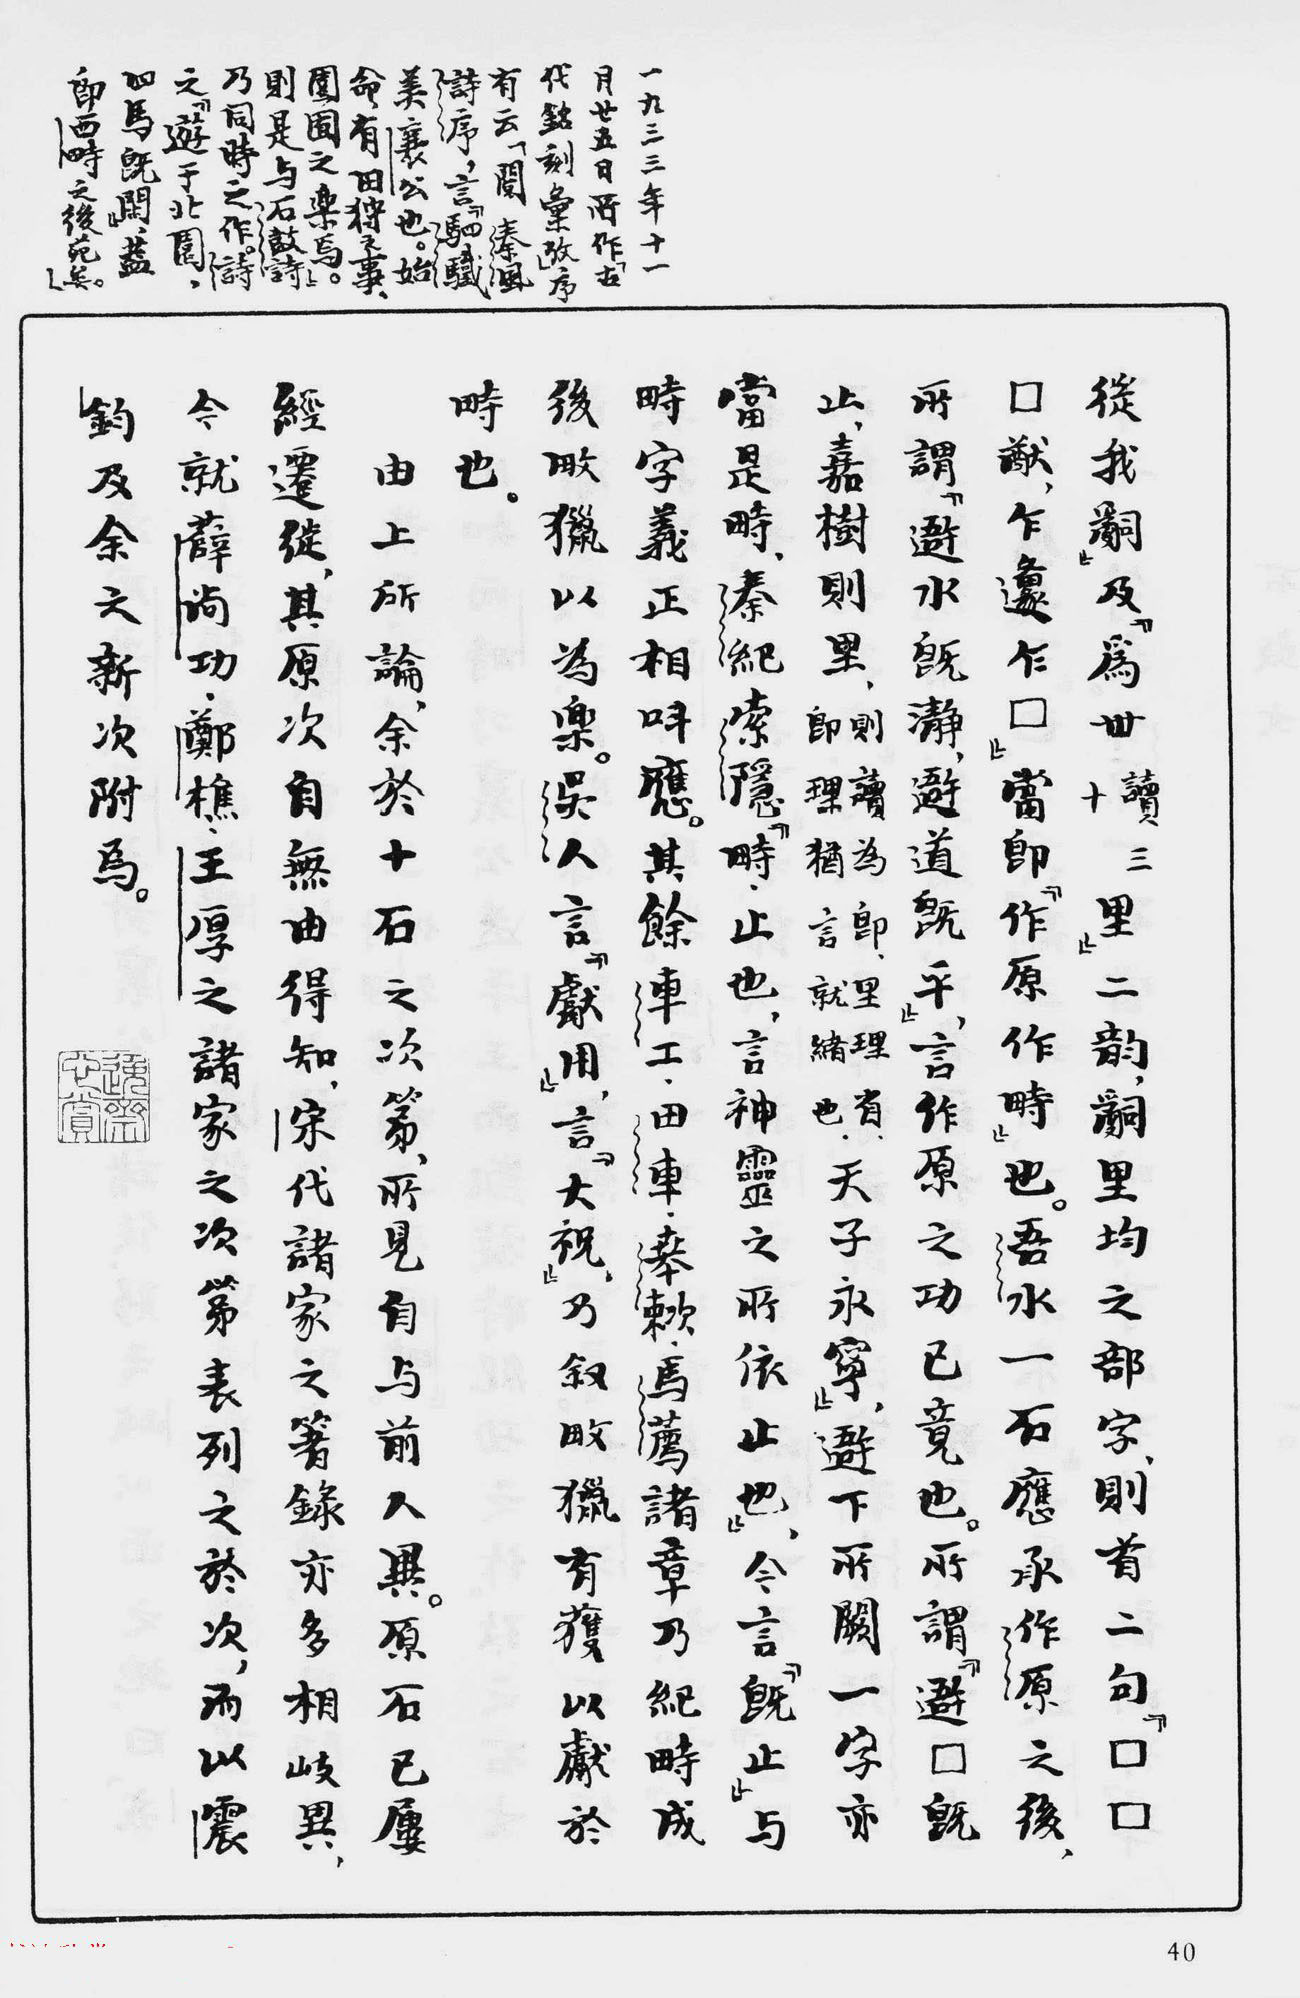 一九三三年十一
月廿五日所作「古
代銘刻彙攷」序
有云「閱秦風
詩序，言「駟驖
美襄公也。始
命，有田狩之事、
園囿之樂焉。」
則是与石鼓詩
乃同時之作。詩
之「遊于北園，
四馬既閑」，蓋
即西畤之後苑矣。」
從我嗣」及「爲卅讀三十里」二韵，嗣里均之部字，則首二句「□□
□猷，乍邍乍□」當即「作原作畤」也。吾水一石應承作原之後，
所謂「避水既瀞，避道既平」，言作原之功已竟也。所謂「避□既
止，嘉樹則里，則讀為即、里理省、即理猶言就緒也．天子永寧」，避下所闕一字亦
當是畤，秦紀索隱「畤．止也，言神靈之所依止也」，今言「既止」与
畤字義正相呼應。其餘車工．田車．奉敕．馬薦諸章乃紀畤成
後畋獵以為樂。吳人言「獻用」，言「大祝」，乃叙畋獵有獲以獻於
畤也。
由上所論，余於十石之次第，所見自与前人異。原石已屢
經遷徙，其原次自無由得知，宋代諸家之箸錄亦多相歧異，
今就薛尚功．鄭樵．王厚之諸家之次第表列之於次，而以震
鈞及余之新次附焉。
40